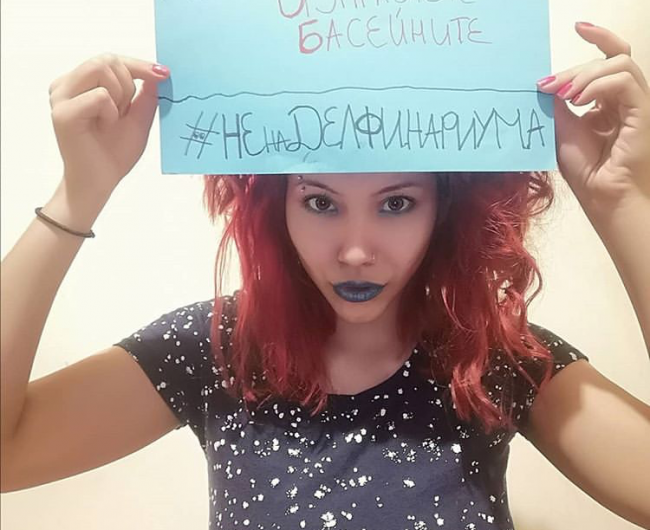 Басейните
#НенаДелфинариума